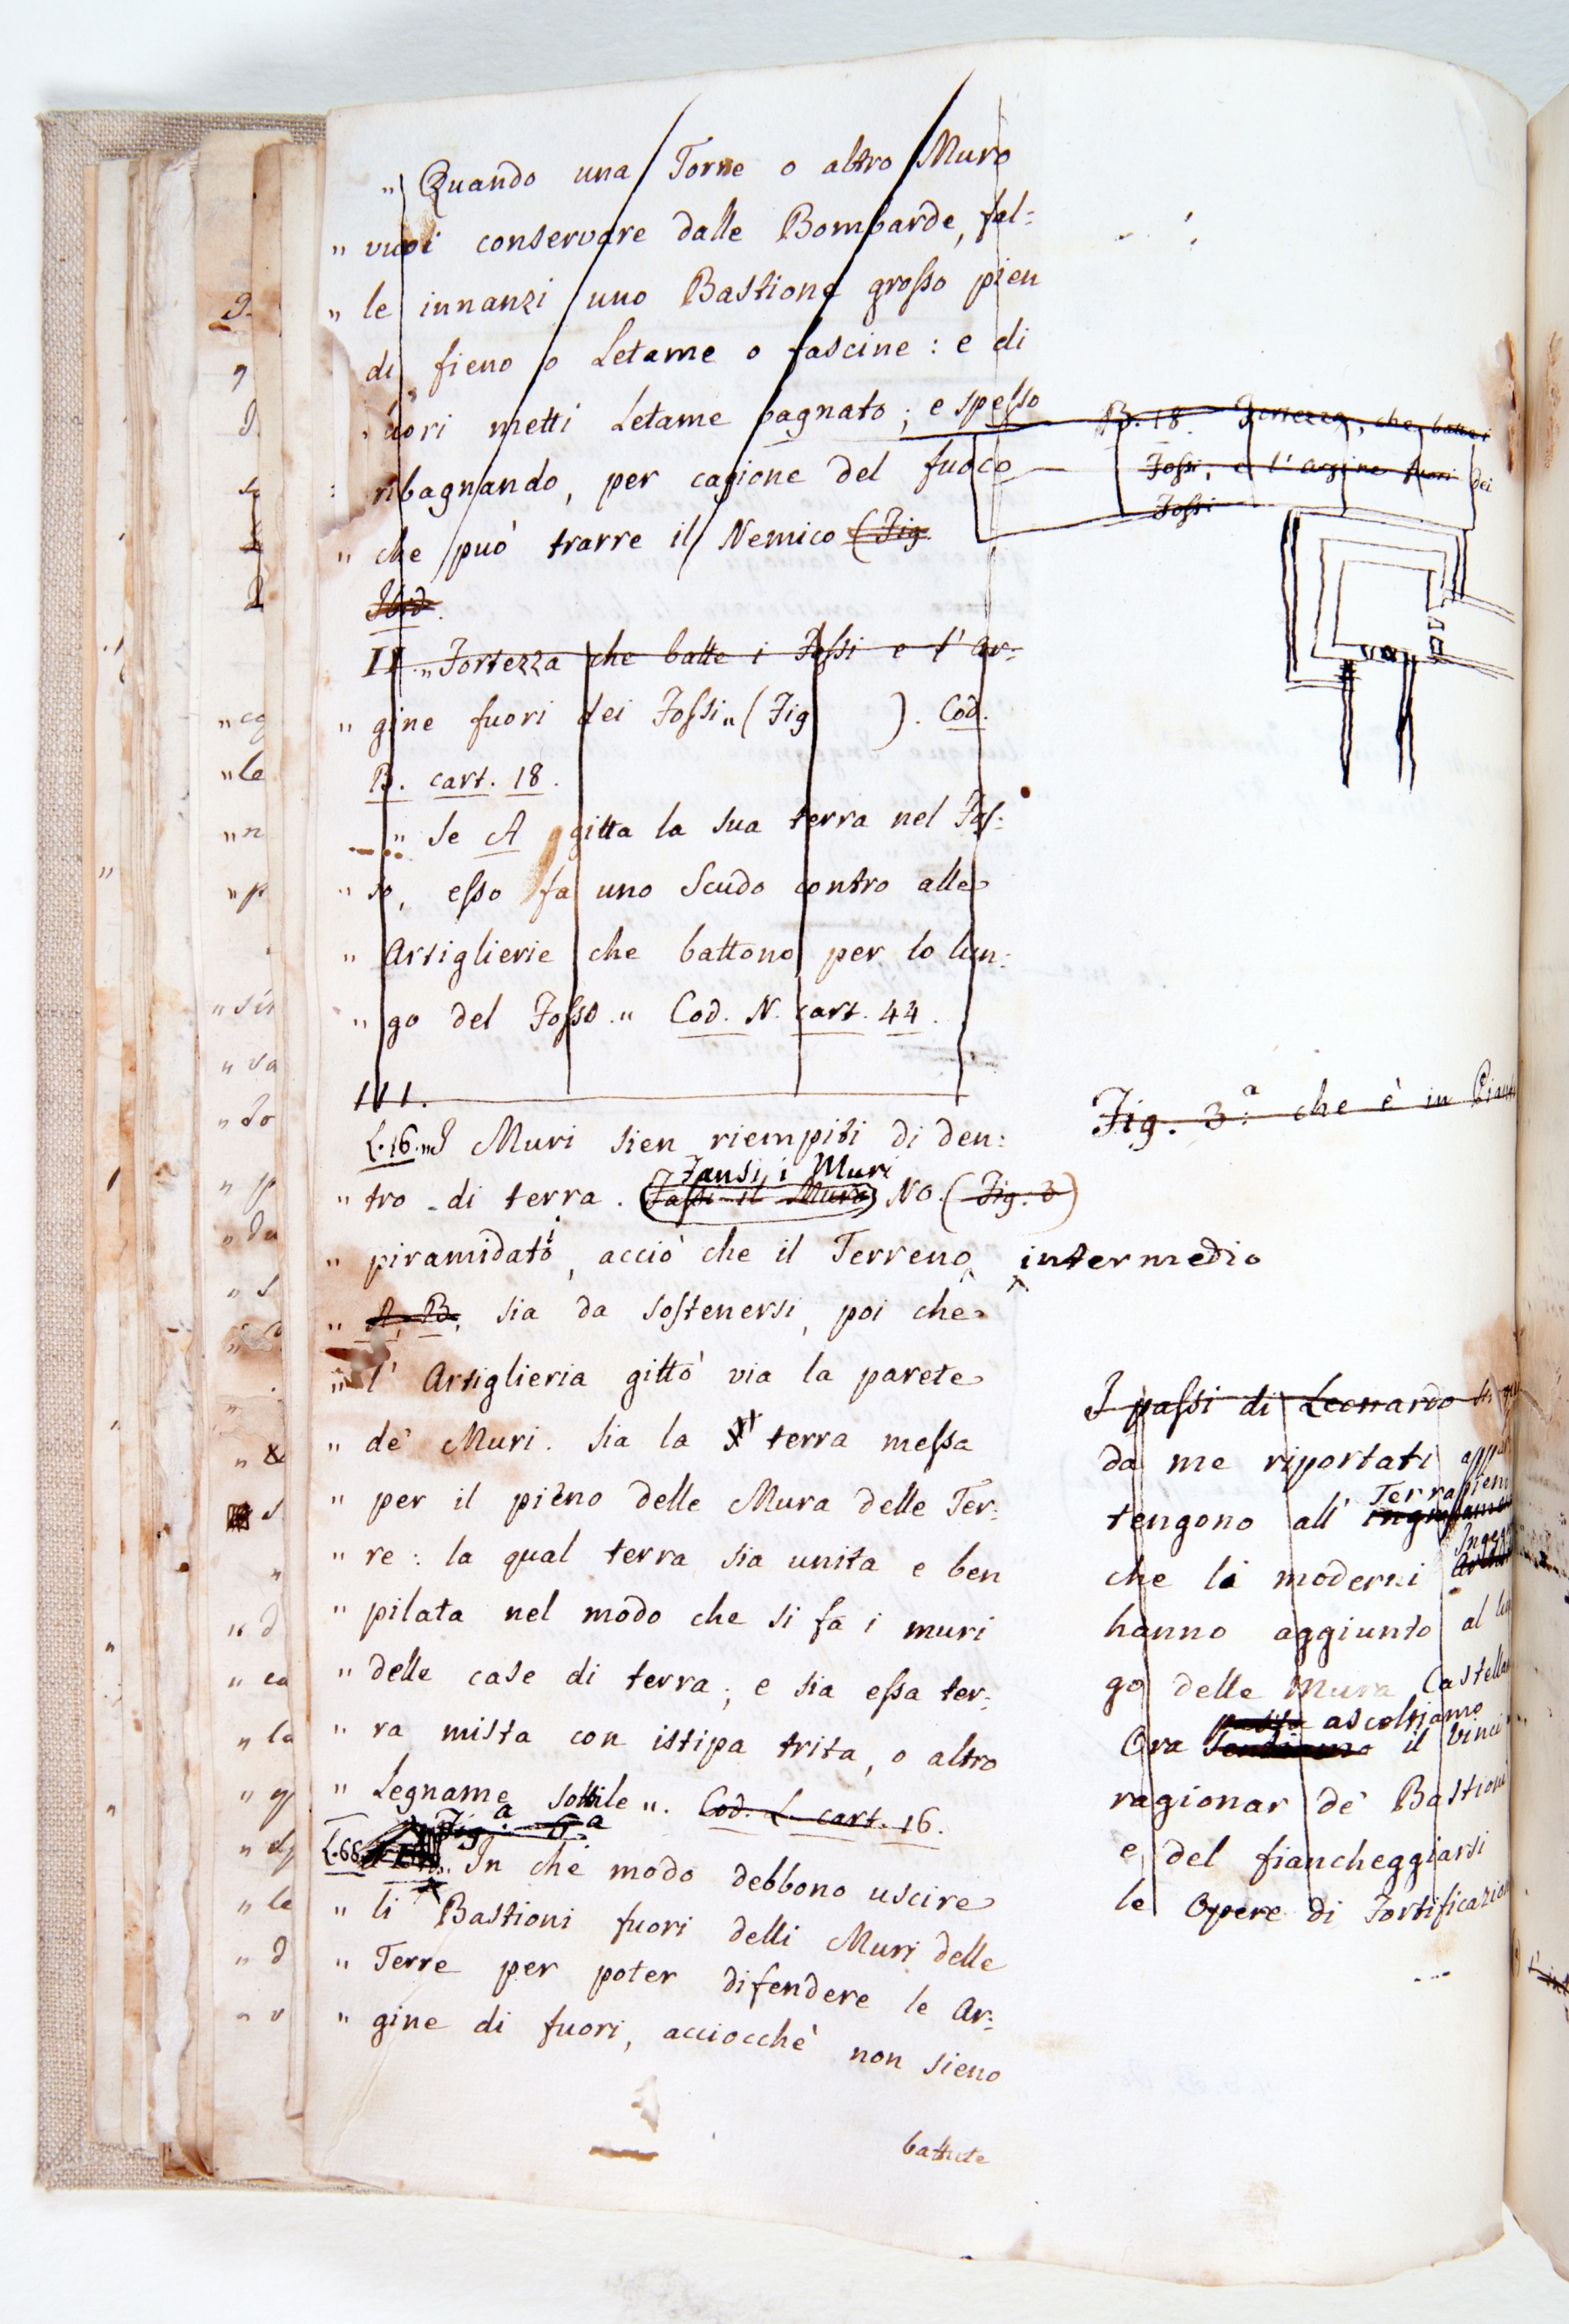 „ Quando una Torre o altro Muro
„ vuoi conservare dalle Bombarde, fal=
„ le innanzi uno Bastione grosso pien
di fieno o Letame o fascine : e di
uori metti Letame bagnato ; e spesso
ribagnando, per cagione del fuoco
„ che può trarre il Nemico (Fig.
Ibid.
II. „ Fortezza che batte i Fossi e l'ar=
„ gine fuori dei Fossi „ (Fig ). Cod.
B. cart. 18.
„ Se A gitta la sua terra nel Fos=
„ so, esso fa uno Scudo contro alle
„ Artiglierie che battono per lo lun=
„ go del Fosso. „ Cod. N. cart. 44.
III.
L.16. „ I Muri sien riempiti di den=
Fansi i Muri
„ tro di terra. (Fassi il Muro) NO. (Fig. 3)
„ piramidati, acciò che il Terreno intermedio
„ A, B, sia da sostenersi, poi che
„ l' Artiglieria gittò via la parete
„ de' Muri. Sia la terra messa
„ per il pieno delle Mura delle Ter=
„ re : la qual terra sia unita e ben
„ pilata nel modo che si fa i muri
„ delle case di terra ; e sia essa ter=
„ ra mista con istipa trita, o altro
„ Legname sottile „. Cod. L. cart. 16.
Fig.ª 6ª
L.66 „ In che modo debbono uscire
„ li Bastioni fuori delli Muri delle
„ Terre per poter difendere le Ar=
„ gine di fuori, acciocchè non sieno
battute
B. 18. Fortezza, che batte i
Fossi, e l'argine fuori dei
Fossi
Fig. 3.ª che è in
I passi di Leonardo
da me riportati
tengono all'
che li moderni
hanno aggiunto al
go delle Mura
ascoltiamo
Ora il
ragionar de' Bastioni
e del fiancheggiarsi
le Opere di